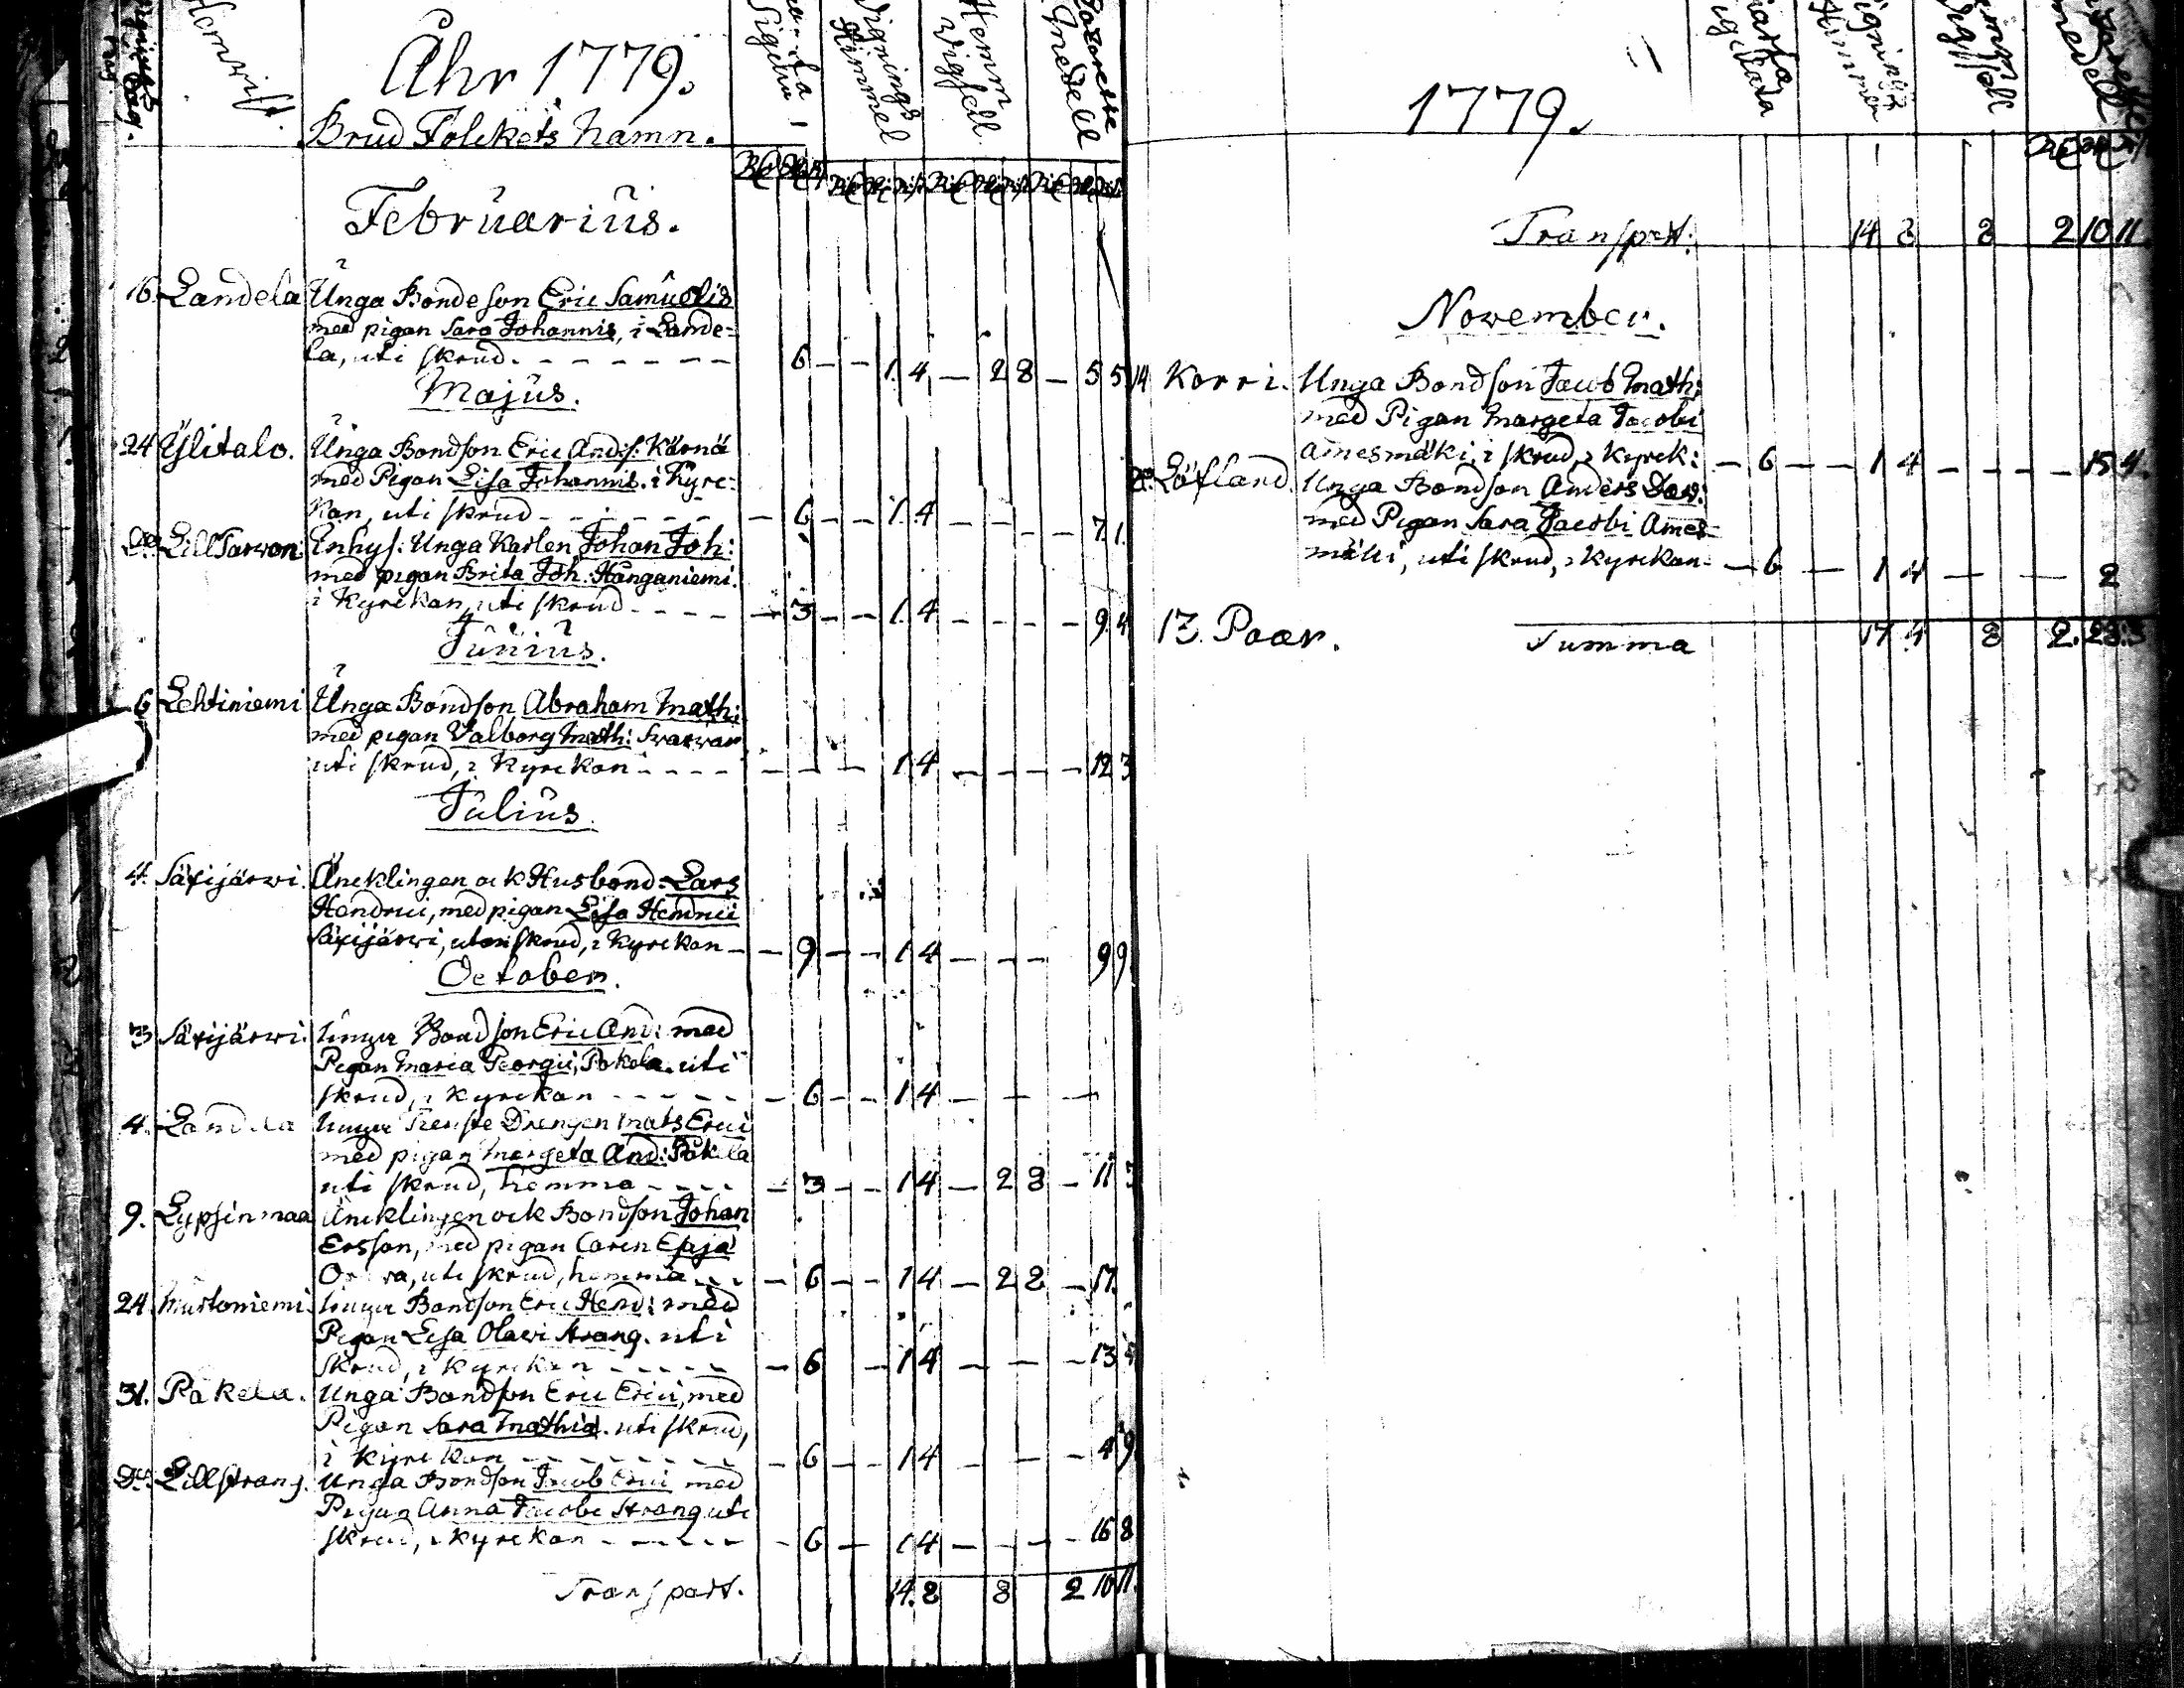 Hemwist.
Åhr 1779.
Brud Folckets Namn.
Wignings Himmel
Hemm Wigsell
Lazarette Medell
Februarius.
16. Landela Unga Bondeson Eric Samuelis
med pigan Sara Johannis, i Lande-
la, uti skrud. - - - 6 - - 1. 4. - 2 8 - 5 5
Majus.
24 Ylitalo. Unga Bondson Eric And:s. Kärnä
med Pigan Lisa Johannis. i Kyrc-
kan, uti skrud - - - 6 - - 1. 4 - - - - 7. 1.
Do. Lill Sarwon: Enhys: Unga Karlen Johan Joh:
med pigan Brita Joh: Hanganiemi.
i Kyrckan, uti skrud - - - 3 - - 1. 4 - - - - 9. 4
Junius.
6 Lehtiniemi Unga Bondson Abraham Math:
med pigan Valborg Math: Swarwar
uti skrud, i Kyrckan - - - 1. 4 - - - - 12 3
Julius.
4. Säxijärwi. Äncklingen ock Husbond: Lars
Hendrici, med pigan Lisa Hendrici
Säxijärwi, utan skrud, i Kyrckan - - 9 - - 1 4 - - - 9 9
October.
3 Säxijärwi. Unga Bondson Eric And: med
Pigan Maria Georgii, Pakela. uti
skrud, i Kyrckan - - - 6 - - 1 4 - - -
4. Landela Unga Drengen Mats Erici
med pigan Margeta And: Pakela
uti skrud, hemma - - - 3 - - 1 4 - 2 8 - 11 3
9. Lypsinmaa Äncklingen ock Bondson Johan
Ersson, med pigan Caren Esajæ
uti skrud, hemma - - - 6 - - 1 4 - 2 8 - 17.
24. Murtoniemi. Unga Bondson Eric Hend: med
Pigan Lisa Olawi Strang. uti
skrud, i Kyrckan - - - 6 - 1 4 - - - 13 5
31. Pakela. Unga Bondson Eric Erici, med
Pigan Sara Mathiæ. uti skrud,
i Kyrckan - - - 6 - 1 4 - - - 4 9
Do. Lillstrang. Unga Bondson Jacob Erici med
Pigan Anna Jacobi Strang uti
skrud, i Kyrckan - - - 6 - 1 4 - - - 16 8
Transport. 14. 8 8 2 10 11.
1779.
Transprt: 14 8 8 2 10 11.
November.
14 Korri. Unga Bondson Jacob Math:
med Pigan Margeta Jacobi
Amesmäki, i skrud, i Kyrck: - 6 - - 1 4 - - - - 15 4.
Do. Löfland. Unga Bondson Anders Dav:
med Pigan Sara Jacobi Ames-
mäki, uti skrud, i Kyrckan - 6 - 1 4 - - 2
13. Paar. Summa 17 4 8 2. 28. 5